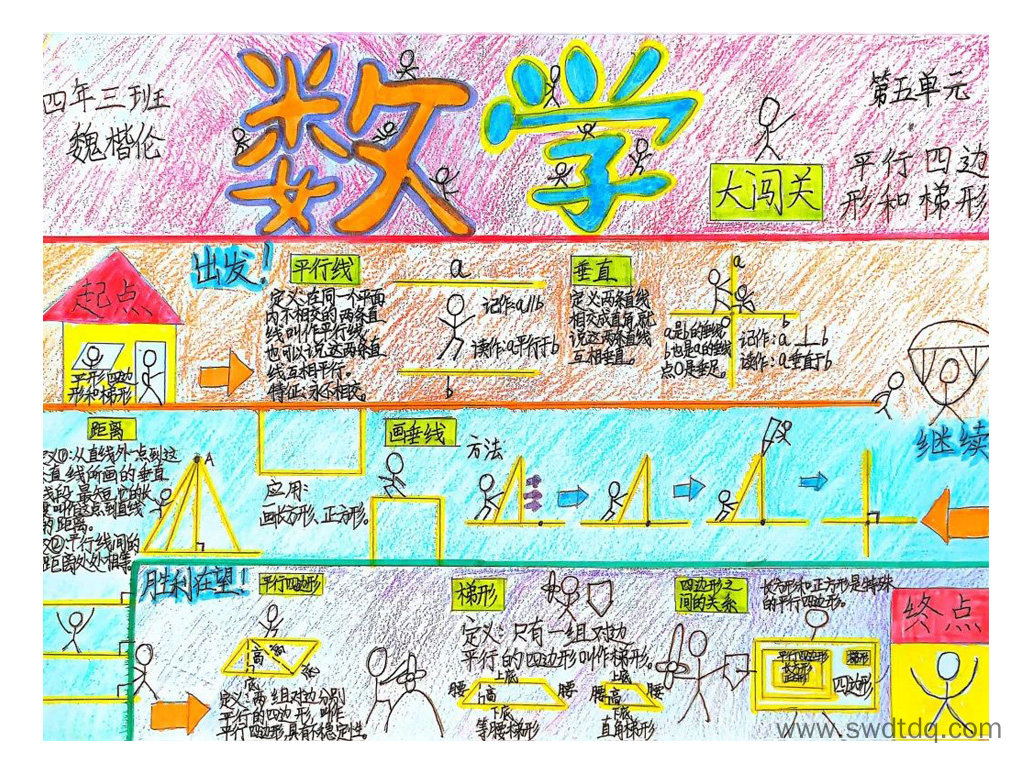 四年三班
魏楷伦
数学
大闯关
第五单元
平行四边
形和梯形
起点
平形四边
形和梯形
出发！
平行线
定义：在同一个平面
内不相交的两条直
线叫作平行线，
也可以说这两条直
线互相平行。
特征：永不相交。
a
记作：a//b
读作：a平行于b
b
垂直
定义：两条直线
相交成直角，就
说这两条直线
互相垂直。
a
b
a是b的垂线
b也是a的垂线
点O是垂足。
记作：a⊥b
读作：a垂直于b
继续
距离
①：从直线外一点到这
直线所画的垂直
线段最短，它的长
度叫作这点到直线
的距离。
②：平行线间的
距离处处相等
A
应用：
画长方形、正方形。
画垂线
方法
胜利在望！
平行四边形
高
高
底
底
定义：两组对边分别
平行的四边形，叫作
平行四边形，具有不稳定性。
梯形
定义：只有一组对边
平行的四边形叫作梯形。
上底
腰 高 腰
下底
等腰梯形
上底
腰 高 腰
下底
直角梯形
四边形之
间的关系
长方形和正方形是特殊
的平行四边形。
平行四边形
长方形
正方形
梯形
四边形
终点
www.swdtdq.com